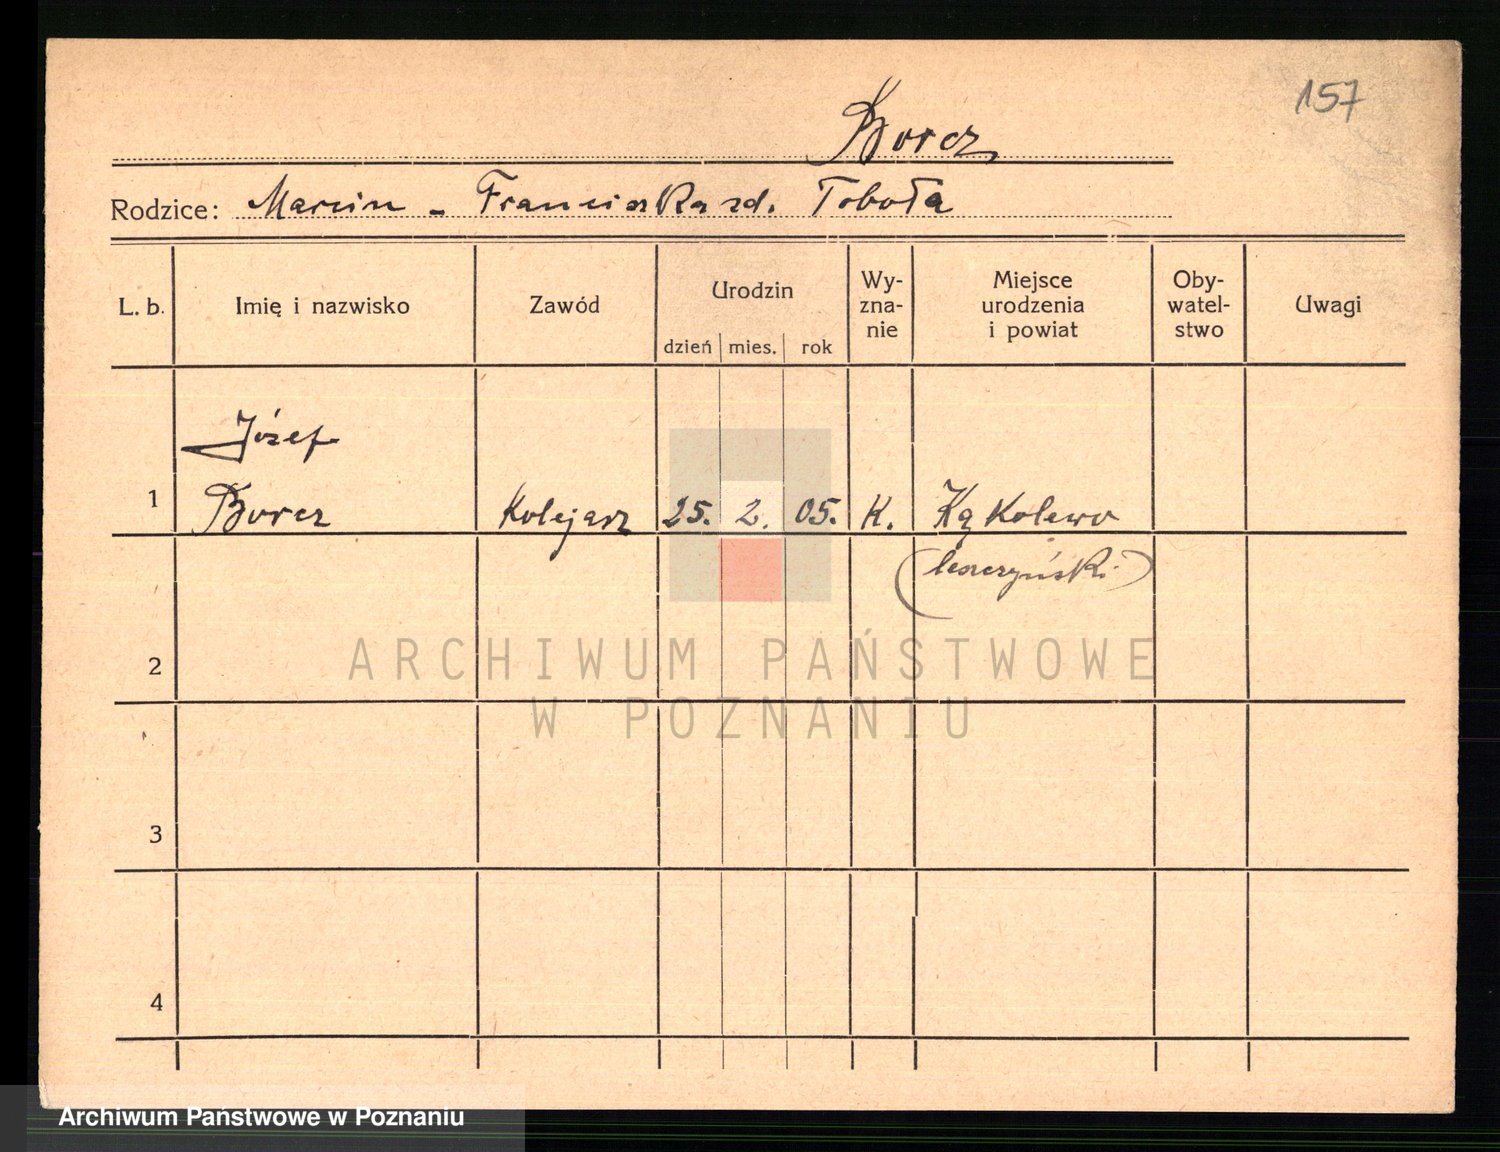 157
Borcz
Rodzice: Marcin - Franciszka zd. Toboła
L. b. Imię i nazwisko Zawód Urodzin Wy- Miejsce Oby- Uwagi
zna- urodzenia watel-
nie i powiat stwo
dzień mies. rok
Józef
1 Borcz Kolejarz 25. 2. 05. K. Kąkolewo
(leszczyński)
2
3
4
ARCHIWUM PAŃSTWOWE
W POZNANIU
Archiwum Państwowe w Poznaniu